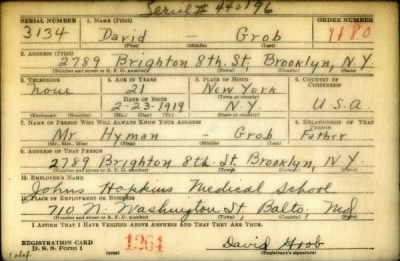 Serial # 440196
SERIAL NUMBER 1. NAME (Print) ORDER NUMBER
3134 David – Grob 1180
(First) (Middle) (Last)
2. ADDRESS (Print)
2789 Brighton 8th St, Brooklyn, N.Y.
(Number and street or R. F. D. number) (Town) (County) (State)
3. TELEPHONE 4. AGE IN YEARS 5. PLACE OF BIRTH 6. COUNTRY OF CITIZENSHIP
none 21 New York
DATE OF BIRTH
2-23-1919 N.Y. U.S.A.
(Mo.) (Day) (Yr.) (State or country)
7. NAME OF PERSON WHO WILL ALWAYS KNOW YOUR ADDRESS 8. RELATIONSHIP OF THAT PERSON
Mr Hyman – Grob Father
(Mr., Mrs., Miss) (First) (Middle) (Last)
9. ADDRESS OF THAT PERSON
2789 Brighton 8th St. Brooklyn, N.Y.
(Number and street or R. F. D. number) (Town) (County) (State)
10. EMPLOYER'S NAME
Johns Hopkins Medical School
11. PLACE OF EMPLOYMENT OR BUSINESS
710 N. Washington St, Balto, Md
(Number and street or R. F. D. number) (Town) (County) (State)
I AFFIRM THAT I HAVE VERIFIED ABOVE ANSWERS AND THAT THEY ARE TRUE.
REGISTRATION CARD
D. S. S. Form 1 1264 David Grob
(Registrant's signature)